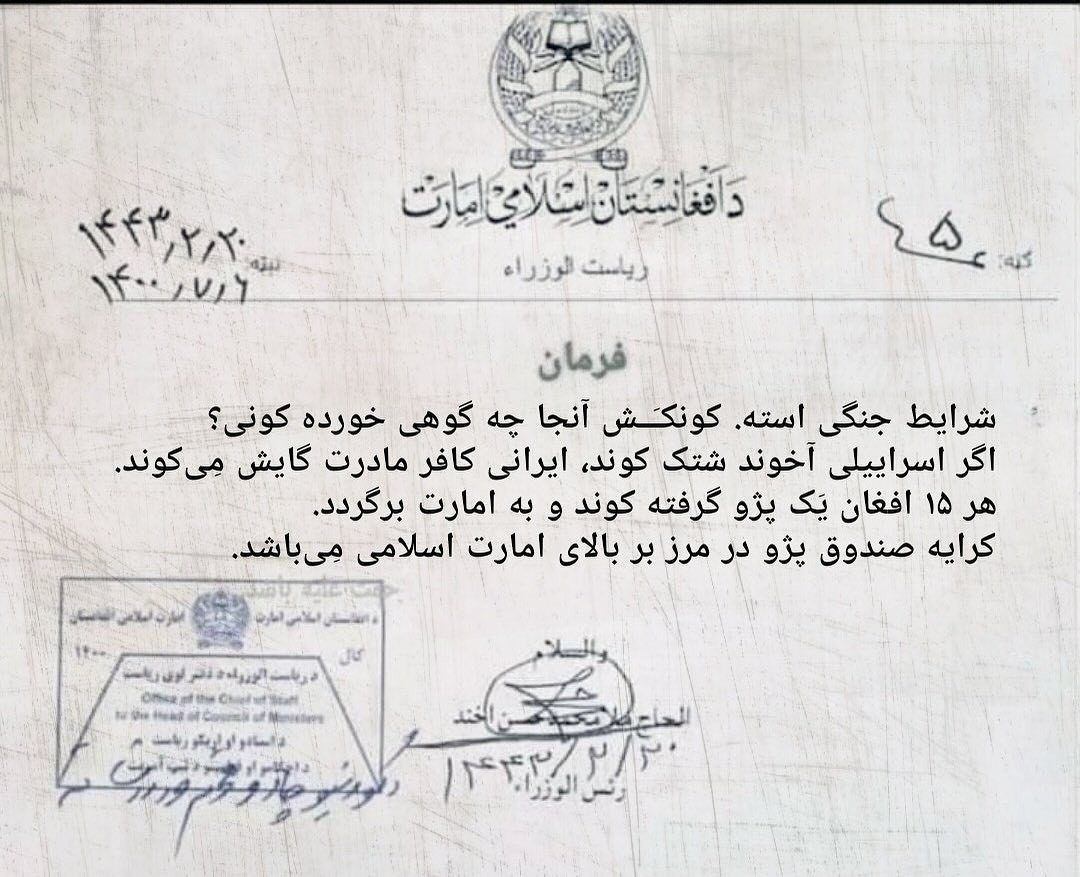 د افغانستان اسلامي امارت
ریاست الوزراء
ګڼه: ۴۵
نېټه: ۱۴۴۳/۲/۲۰
۱۴۰۰/۷/۶
فرمان
شرایط جنگی استه. کونکَــش آنجا چه گوهی خورده کونی؟
اگر اسراییلی آخوند شتک کوند، ایرانی کافر مادرت گایش مِی‌کوند.
هر ۱۵ افغان یَک پژو گرفته کوند و به امارت برگردد.
کرایه صندوق پژو در مرز بر بالای امارت اسلامی مِی‌باشد.
والسلام
الحاج ملا محمد حسن اخند
۱۴۴۳/۲/۲۰
رئس الوزراء
د افغانستان اسلامي امارت
امارت اسلامی افغانستان
کال ۱۴۰۰
د ریاست الوزراء د دفتر لوی ریاست
Office of the Chief of Staff
to the Head of Council of Ministers
د اسنادو او اړیکو ریاست